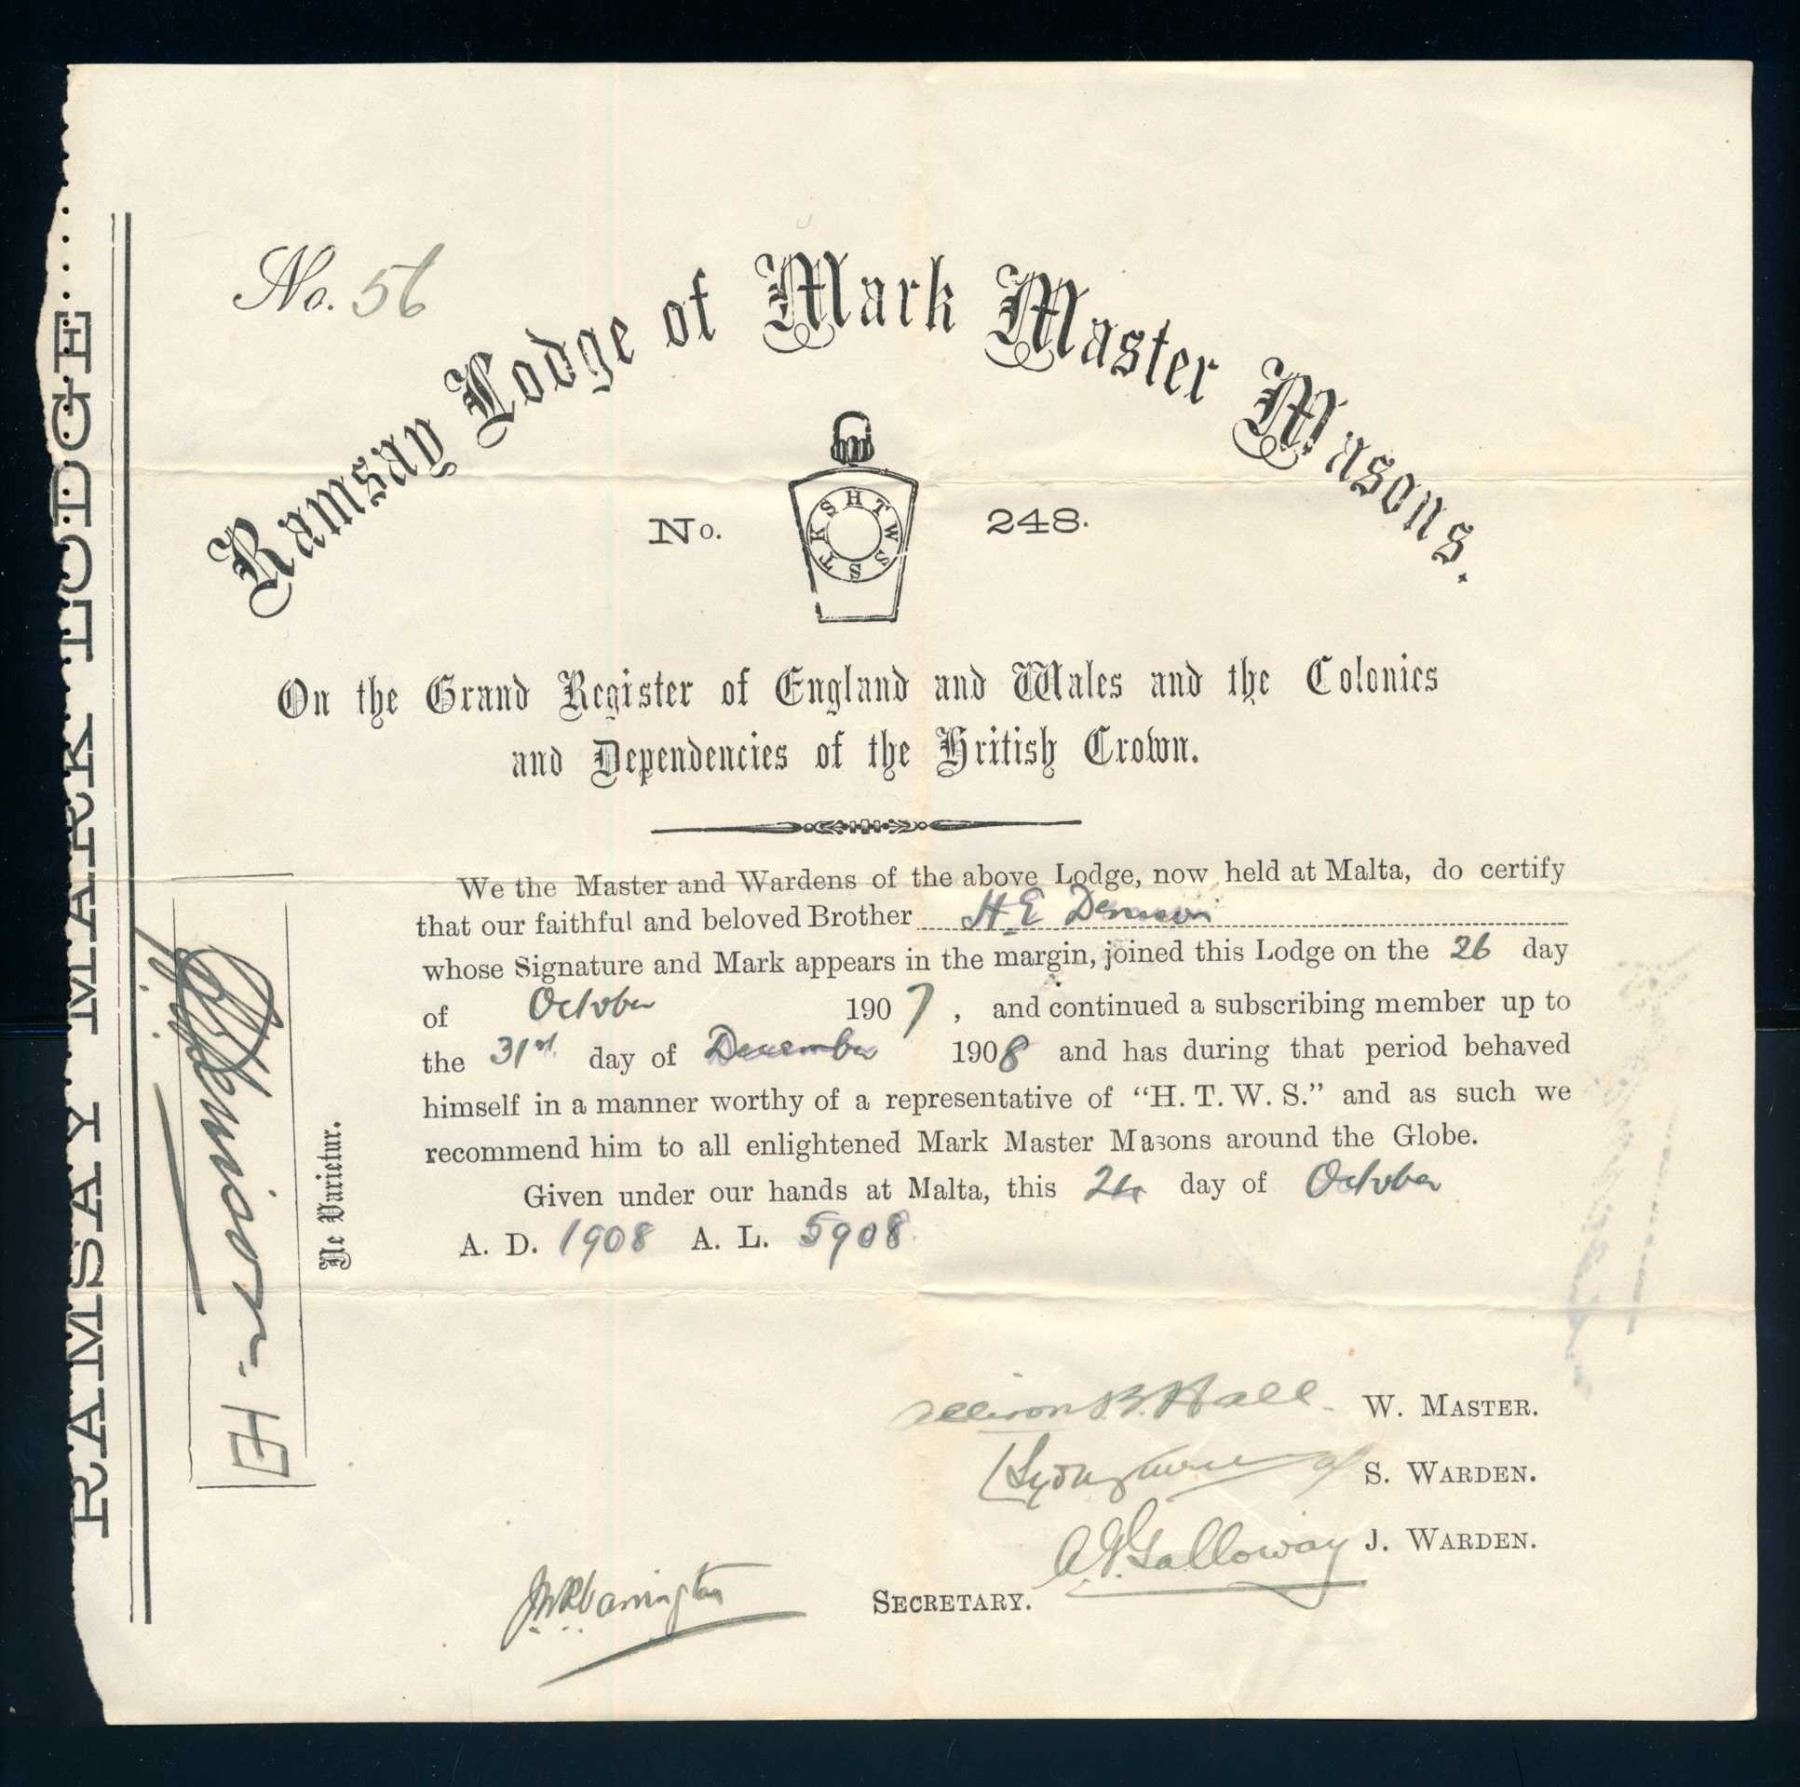 No. 56
Ramsay Lodge of Mark Master Masons.
No. 248.
H T W S S T K S
On the Grand Register of England and Wales and the Colonies
and Dependencies of the British Crown.
We the Master and Wardens of the above Lodge, now held at Malta, do certify
that our faithful and beloved Brother H. E Dennison
whose Signature and Mark appears in the margin, joined this Lodge on the 26 day
of October 1907, and continued a subscribing member up to
the 31st day of December 1908 and has during that period behaved
himself in a manner worthy of a representative of “H. T. W. S.” and as such we
recommend him to all enlightened Mark Master Masons around the Globe.
Given under our hands at Malta, this 24 day of October
A. D. 1908 A. L. 5908.
B. Hall. W. Master.
S. Warden.
A. Galloway J. Warden.
Secretary.
Ne Varietur.
RAMSAY MARK LODGE